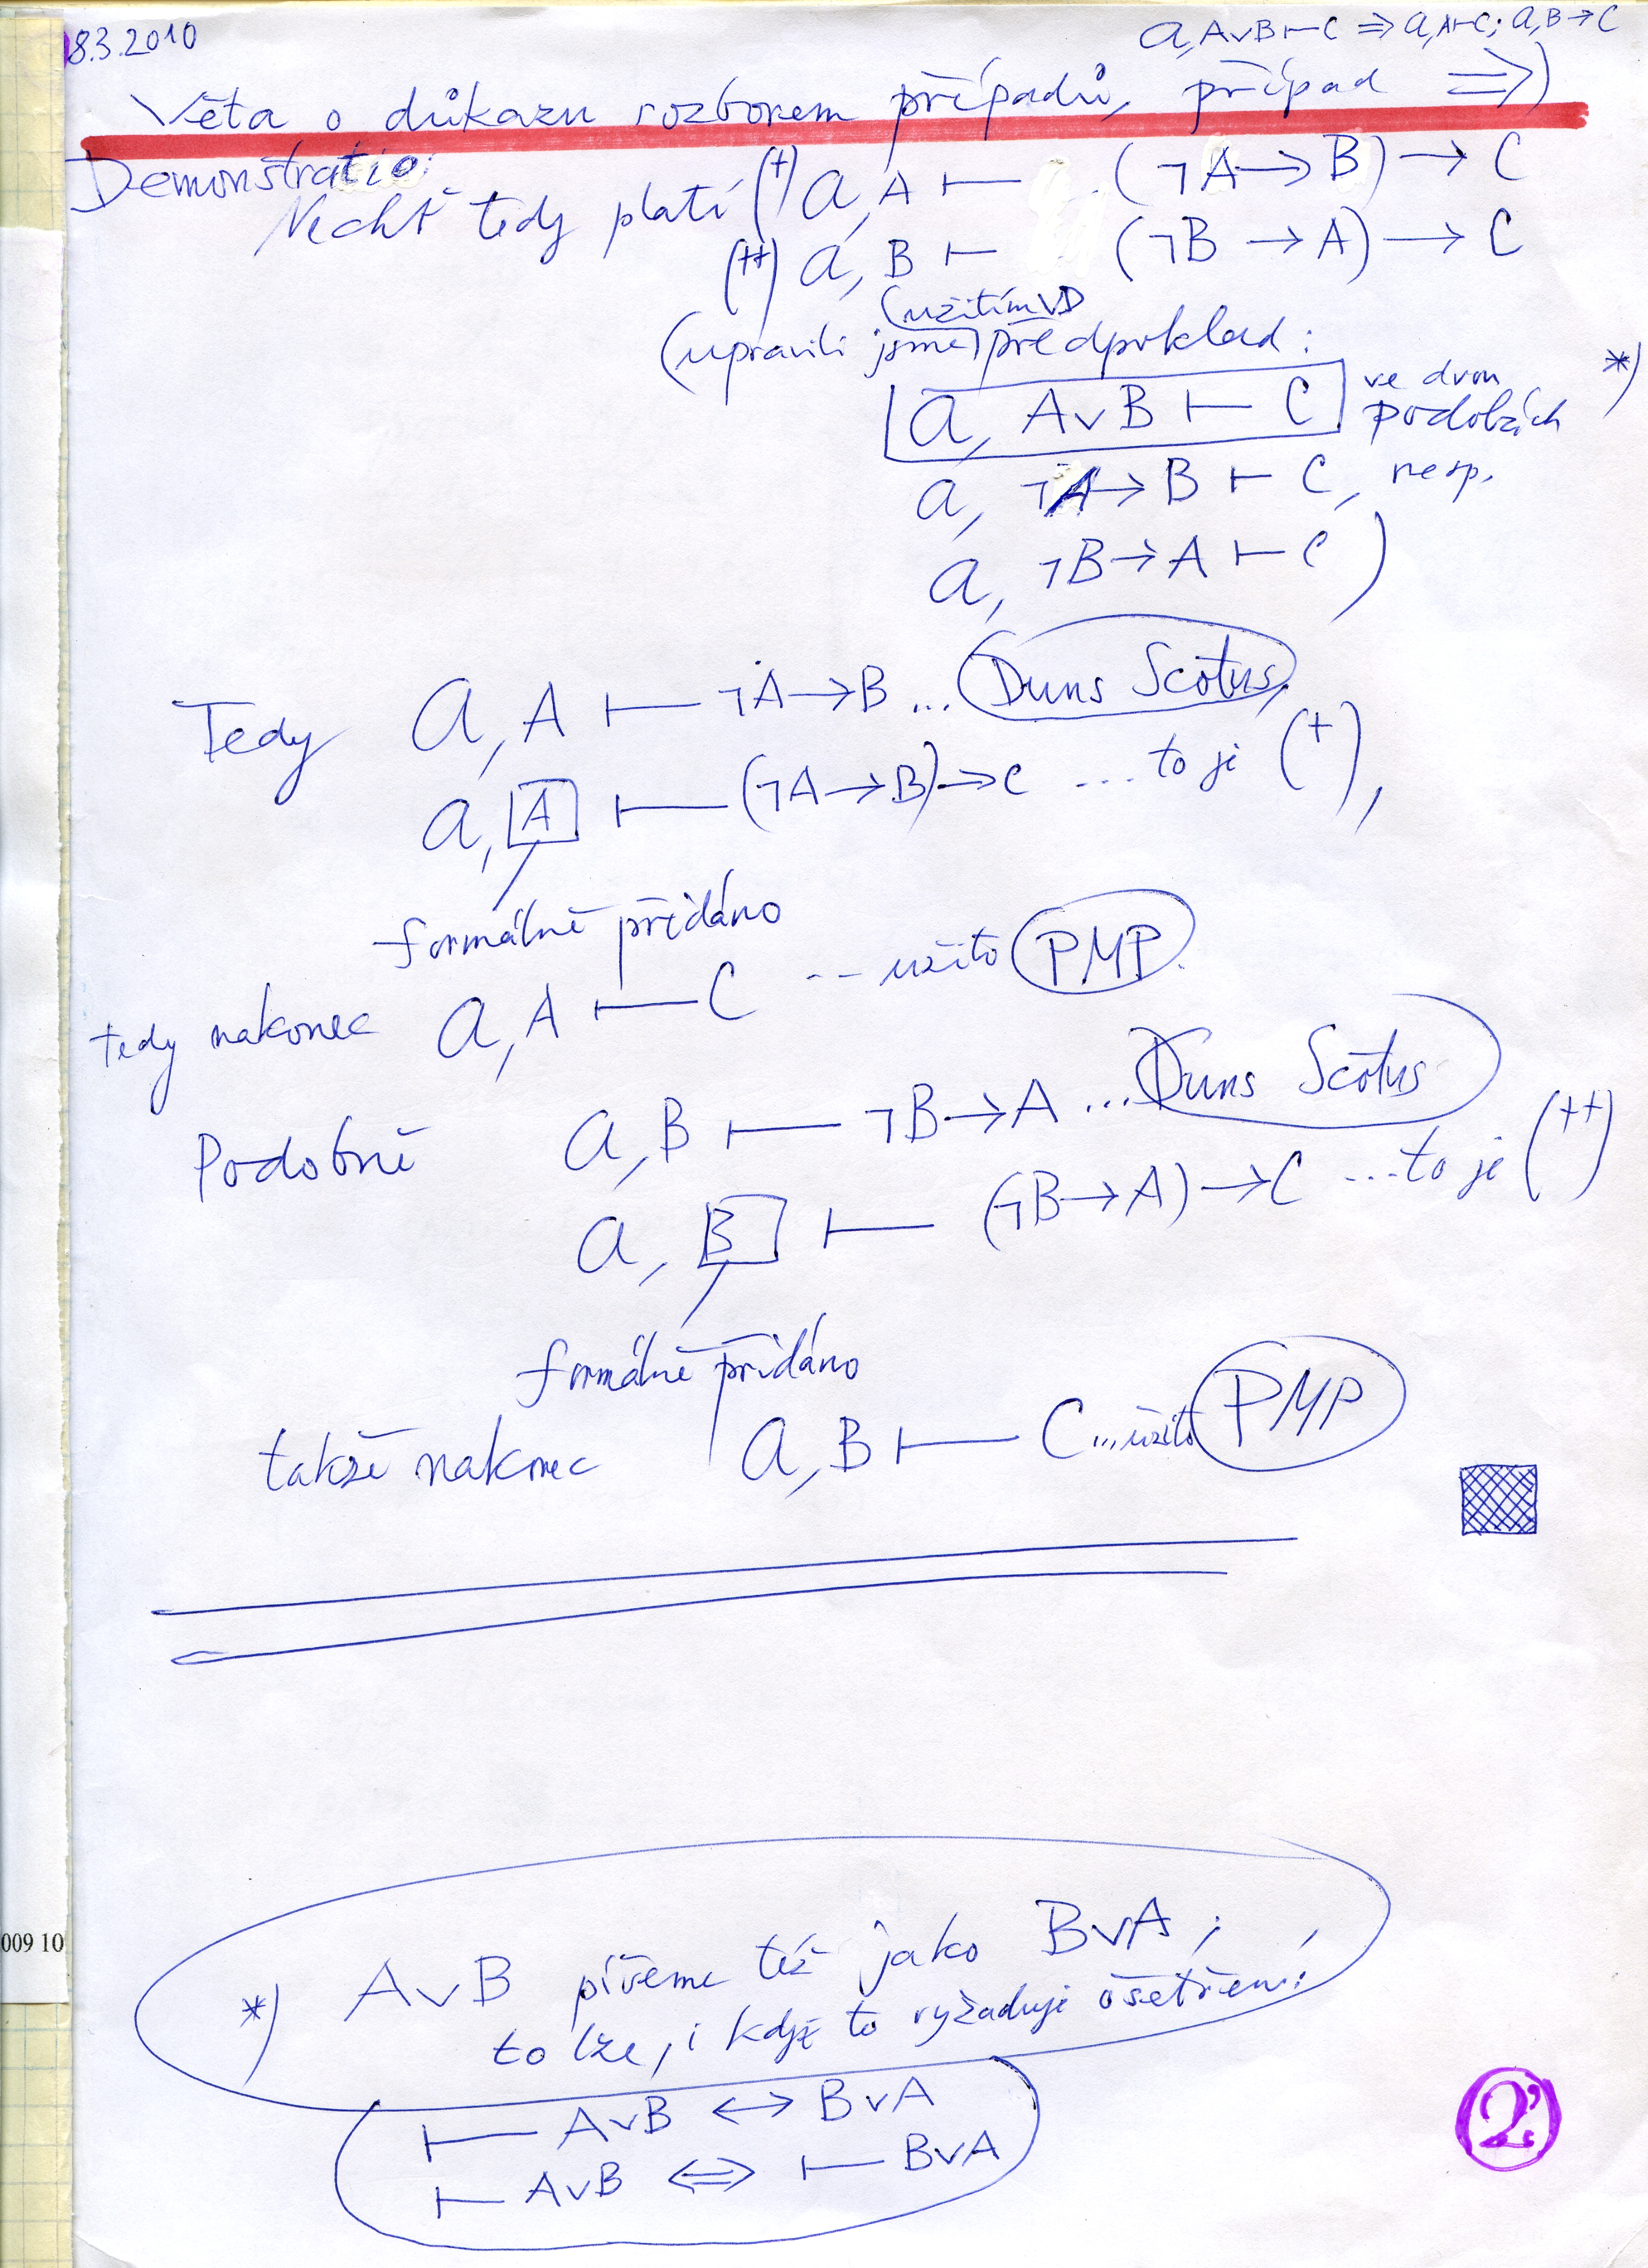 8.3.2010
a, A∨B ⊢ C ⇒ a, A ⊢ C; a, B → C
Věta o důkazu rozborem případů, případ ⇒)
Demonstratio:
Nechť tedy platí (+) a, A ⊢ (¬A → B) → C
(++) a, B ⊢ (¬B → A) → C
(užitím VD)
(upravili jsme předpoklad:
a, A∨B ⊢ C ve dvou podobách *)
a, ¬A → B ⊢ C, resp.
a, ¬B → A ⊢ C )
Tedy a, A ⊢ ¬A → B ... Duns Scotus,
a, A ⊢ (¬A → B) → C ... to je (+),
formálně přidáno
tedy nakonec a, A ⊢ C -- užito PMP.
Podobně a, B ⊢ ¬B → A ... Duns Scotus
a, B ⊢ (¬B → A) → C ... to je (++)
formálně přidáno
takže nakonec a, B ⊢ C ... užito PMP
009 10
*) A∨B píšeme též jako B∨A;
to lze, i když to vyžaduje ošetření:
⊢ A∨B ↔ B∨A
⊢ A∨B ⇔ ⊢ B∨A
2'